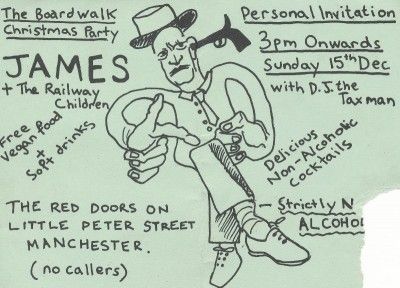 The Boardwalk
Christmas Party
JAMES
+ The Railway
Children
Free
Vegan food
+
Soft drinks
THE RED DOORS ON
LITTLE PETER STREET
MANCHESTER.
(no callers)
Personal Invitation
3pm Onwards
Sunday 15th Dec
with D.J. the
Taxman
Delicious
Non-Alcoholic
Cocktails
- Strictly N
ALCOHOL